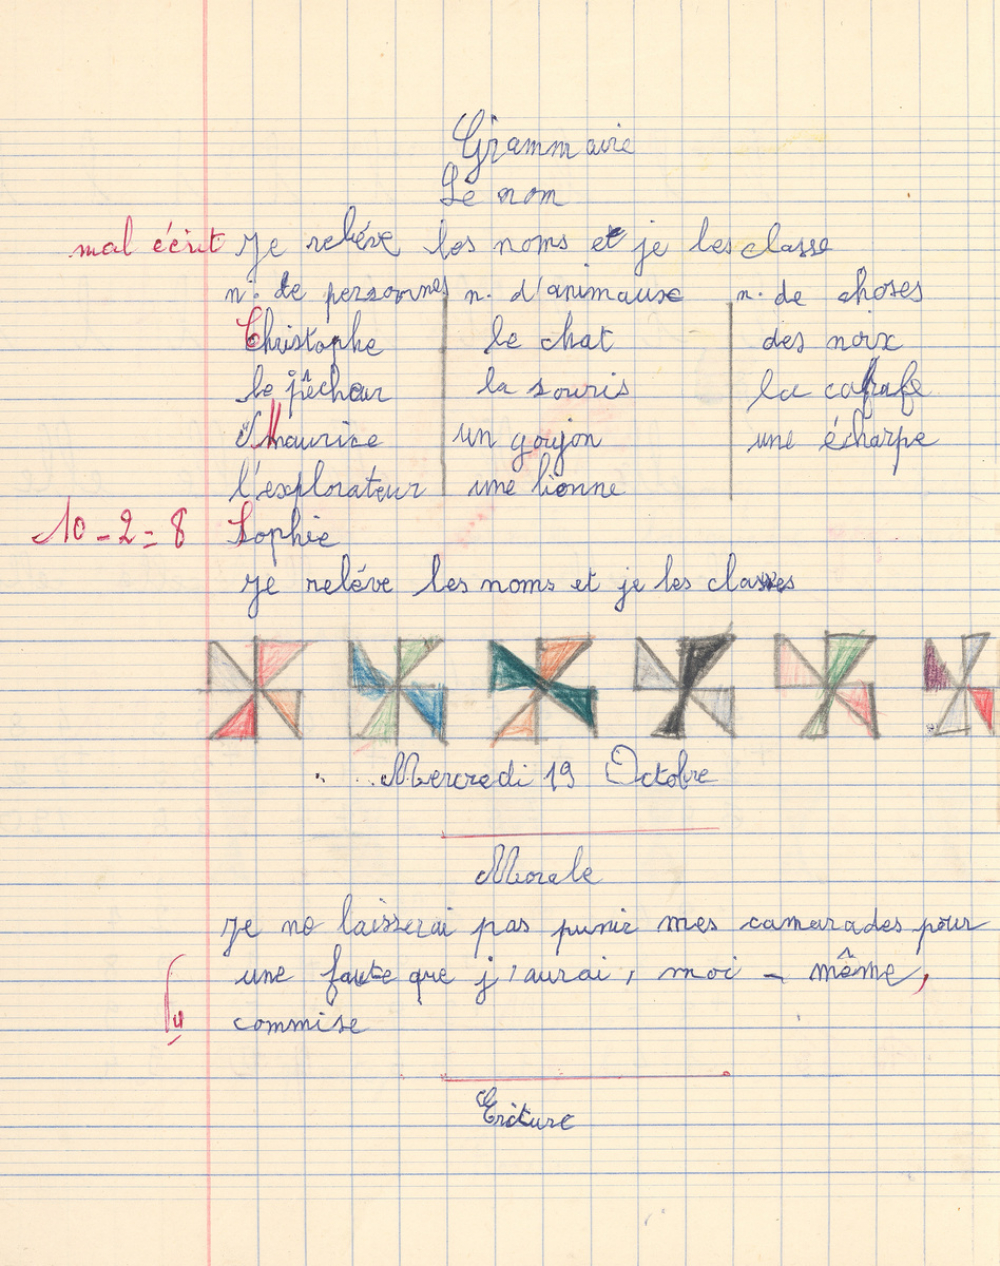 Grammaire
Le nom
mal écrit Je reléve les noms et je les classe
n. de personnes n. d'animaux n. de choses
Christophe le chat des noix
le pêcheur la souris la carafe
Maurice un goujon une écharpe
l'explorateur une lionne
10-2=8 Sophie
Je reléve les noms et je les classes
Mercredi 19 Octobre
Morale
Je ne laisserai pas punir mes camarades pour
une faute que j'aurai, moi - même,
commise
Ecriture